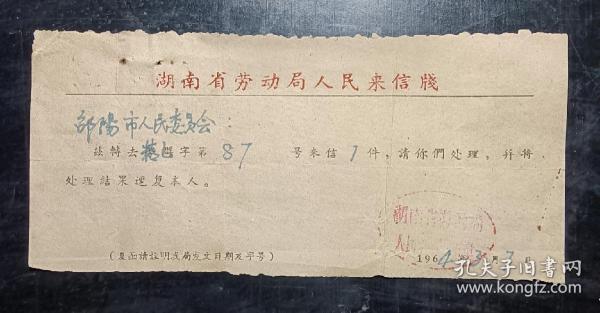 湖南省劳动局人民来信牋
邵陽市人民委員会：
兹轉去 字第87号来信1件，請你們处理，并将
处理結果逕复本人。
湖南省劳动局
人民
1964年3月3日
（复函請註明我局发文日期及字号）
孔夫子旧书网